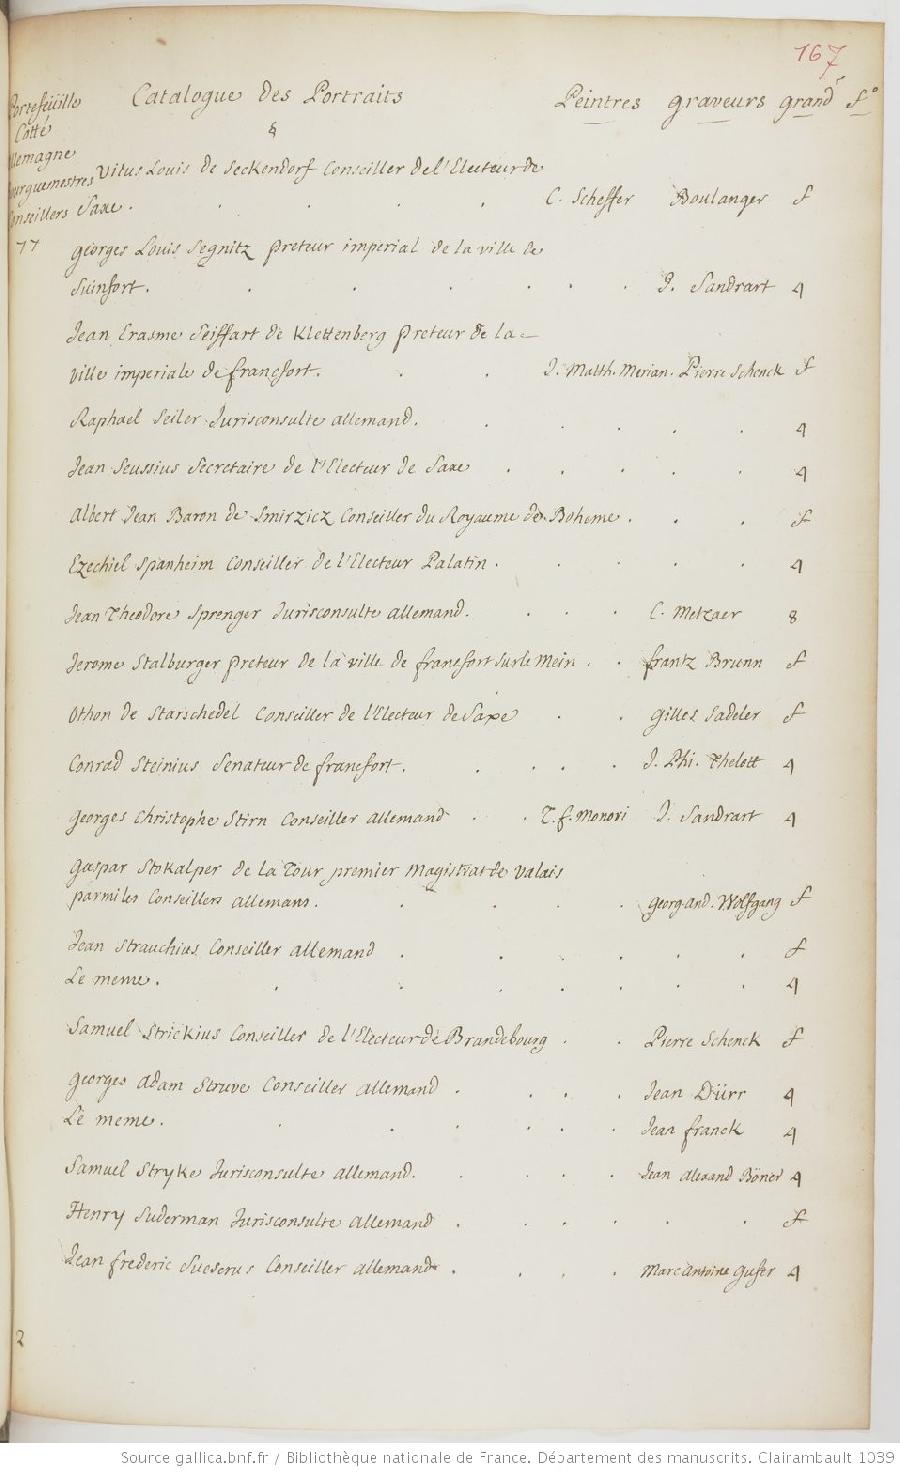 167
Portefeüille Catalogue des Portraits Peintres graveurs grand.r f.o
Cotté S
allemagne
Bourguemestres Vitus Louis de Seckendorf Conseiller de l'Electeur de
Conseillers Saxe. C. Scheffer Boulanger f
77
georges Louis Segnitz preteur imperial de la ville de
Suinfort. J. Sandrart 4
Jean Erasme Seiffart de Klettenberg preteur de la
ville imperiale de francfort. J. Matth. Merian. Pierre Schenck f
Raphael Seiler Jurisconsulte allemand. 4
Jean Seussius Secretaire de l'Electeur de Saxe 4
Albert Jean Baron de Smirzicz Conseiller du Royaume de Boheme. f
Ezechiel Spanheim Conseiller de l'Electeur Palatin. 4
Jean Theodore Sprenger Jurisconsulte allemand. C. Metzaer 8
Jerome Stalburger preteur de la ville de francfort sur le Mein. frantz Brunn f
Othon de Starschedel Conseiller de l'Electeur de Saxe Gilles Sadeler f
Conrad Steinius Senateur de francfort. J. Phi. Thelott 4
georges Christophe Stirn Conseiller allemand T. f. Monori J. Sandrart 4
gaspar Stokalper de la Tour premier Magistrat de Valais
parmi les Conseillers allemans. georg and. Wolfgang f
Jean Strauchius Conseiller allemand f
Le meme. 4
Samuel Strickius Conseiller de l'Electeur de Brandebourg Pierre Schenck f
georges adam Struve Conseiller allemand. Jean Dürr 4
Le meme. Jean franck 4
Samuel Stryke Jurisconsulte allemand. Jean Alexand Böner 4
Henry Suderman Jurisconsulte allemand. f
Jean frederic Conseiller allemand. Marc antoine gufer 4
2
Source gallica.bnf.fr / Bibliothèque nationale de France. Département des manuscrits. Clairambault 1039